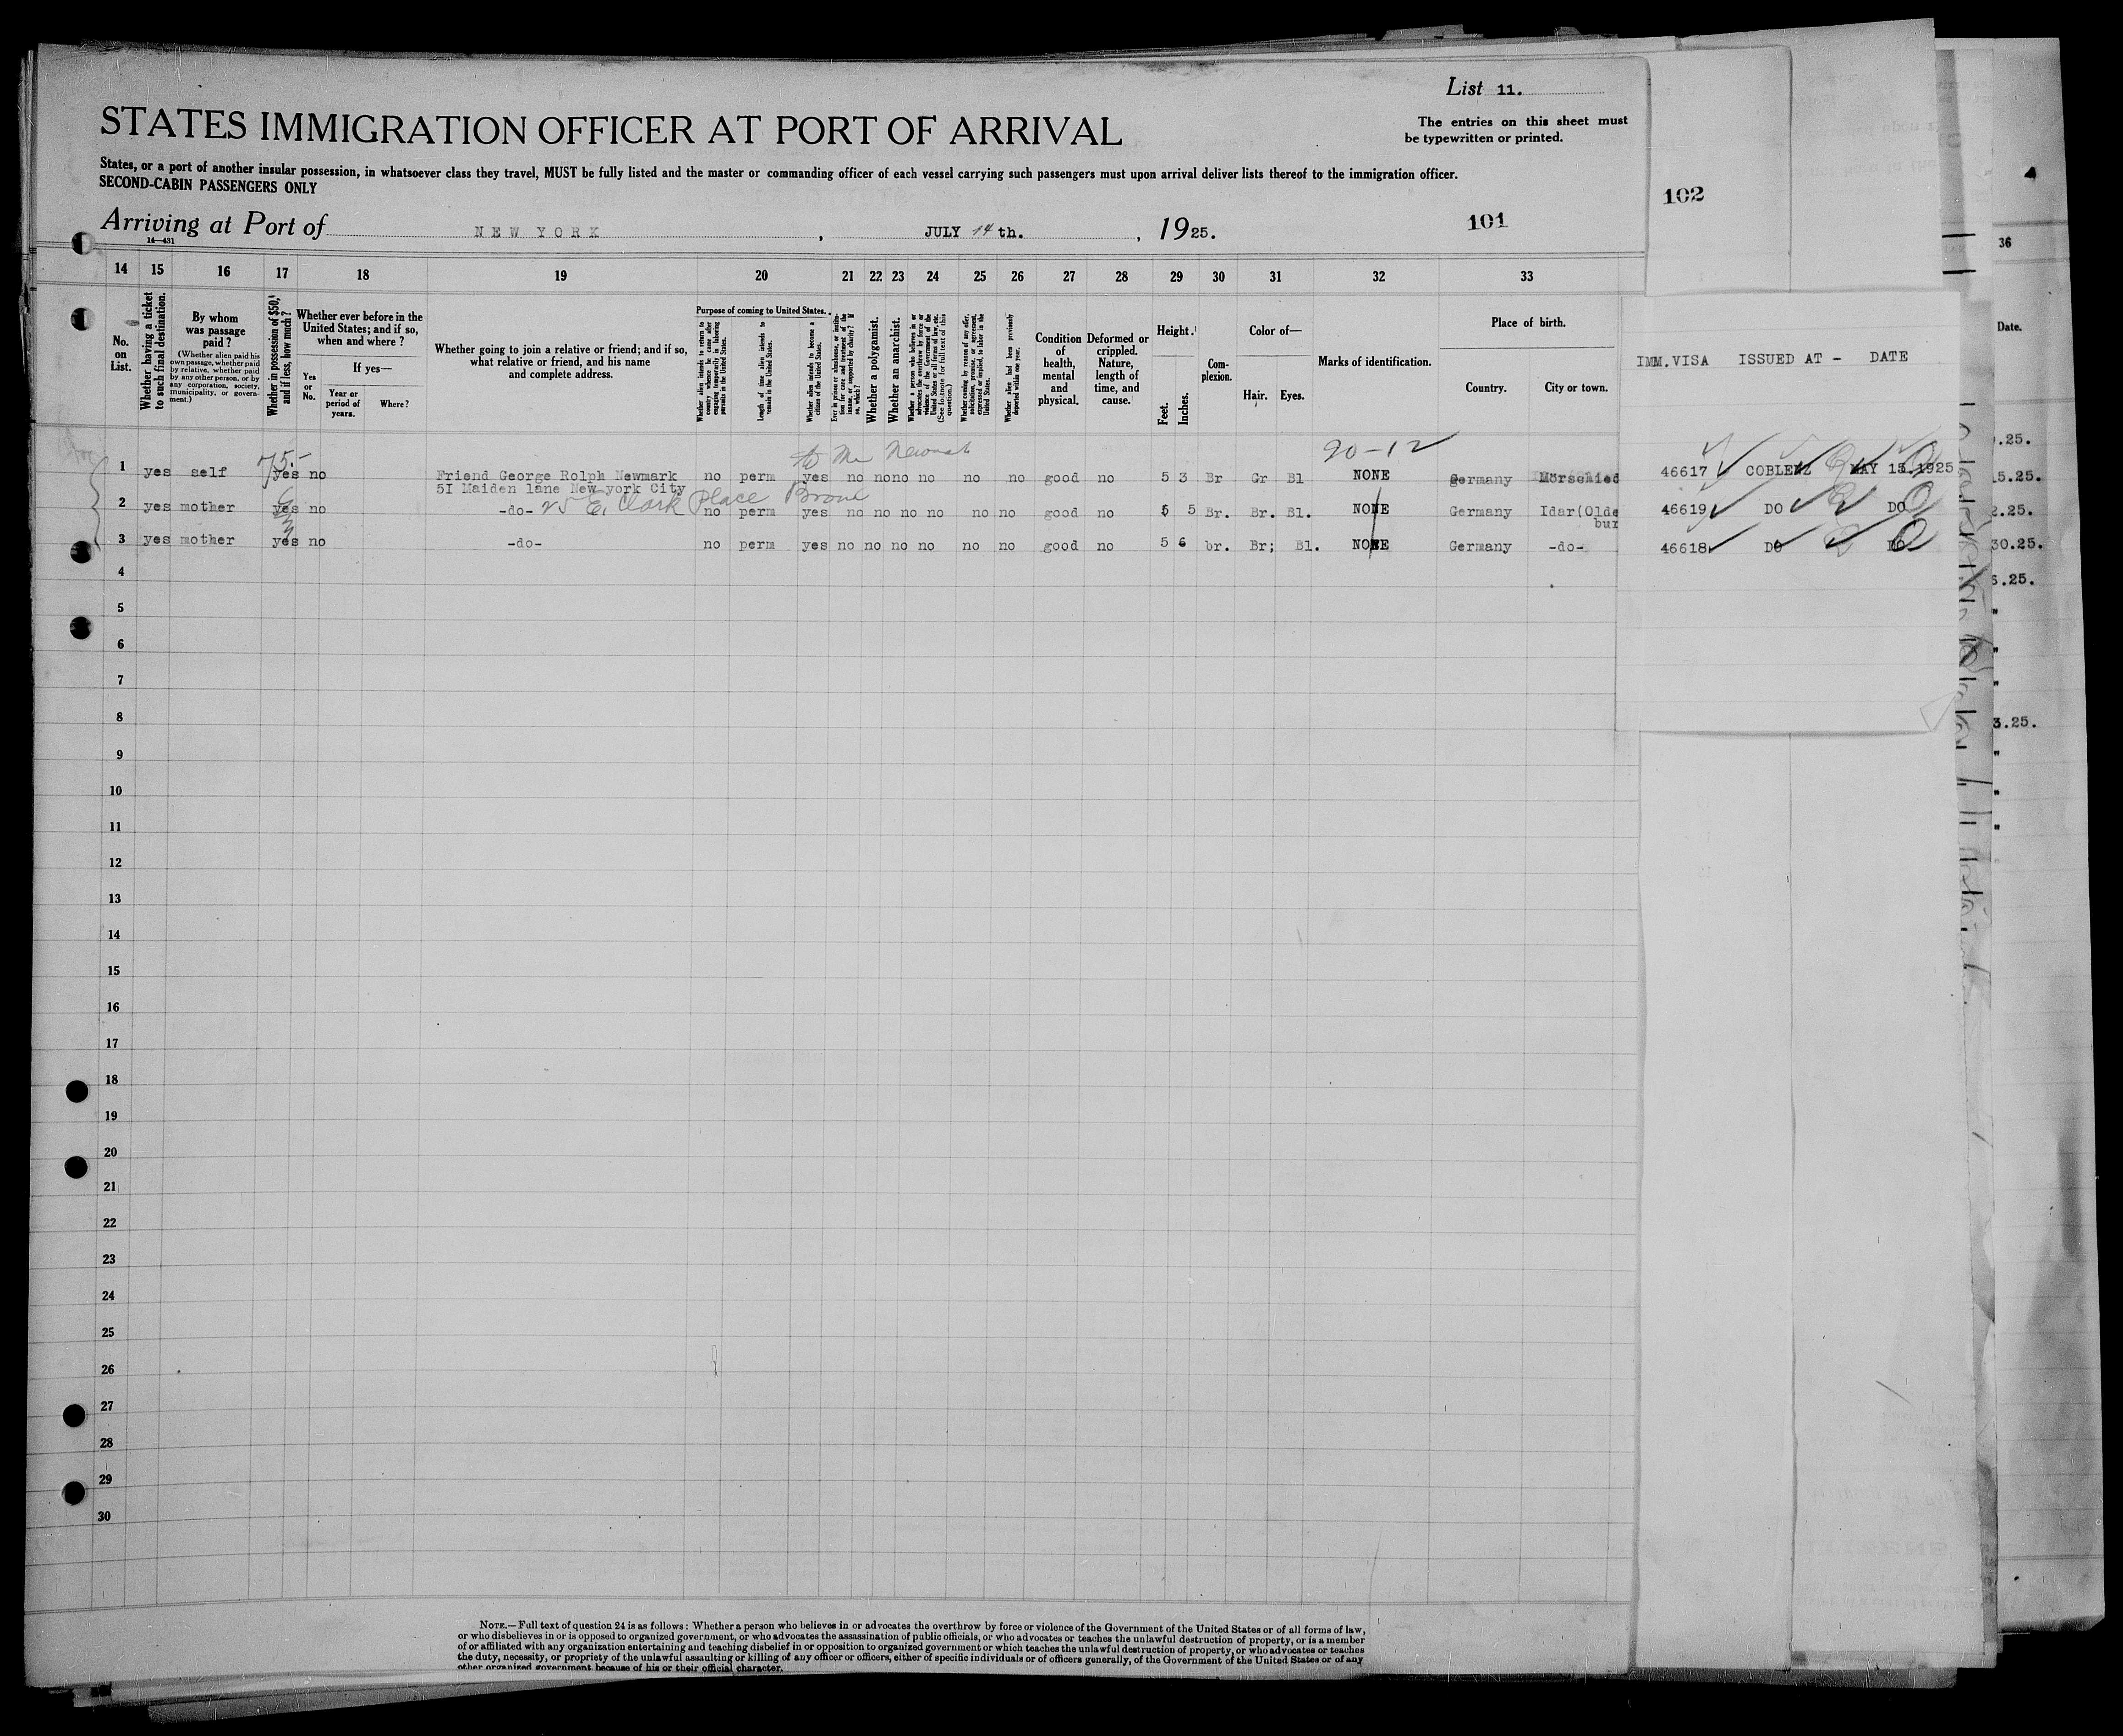 List 11.
STATES IMMIGRATION OFFICER AT PORT OF ARRIVAL
The entries on this sheet must
be typewritten or printed.
States, or a port of another insular possession, in whatsoever class they travel, MUST be fully listed and the master or commanding officer of each vessel carrying such passengers must upon arrival deliver lists thereof to the immigration officer.
SECOND-CABIN PASSENGERS ONLY
102
Arriving at Port of NEW YORK, JULY 14 th., 1925.
101
14—431
36
14 15 16 17 18 19 20 21 22 23 24 25 26 27 28 29 30 31 32 33
No. on List.
Whether having a ticket to such final destination.
By whom was passage paid?
(Whether alien paid his own passage, whether paid by relative, whether paid by any other person, or by any corporation, society, municipality, or government.)
Whether in possession of $50, and if less, how much?
Whether ever before in the United States; and if so, when and where?
Yes or No.
If yes—
Year or period of years.
Where?
Whether going to join a relative or friend; and if so, what relative or friend, and his name and complete address.
Purpose of coming to United States.
Whether alien intends to return to country whence he came after engaging temporarily in laboring pursuits in the United States.
Length of time alien intends to remain in the United States.
Whether alien intends to become a citizen of the United States.
Ever in prison or almshouse, or institution for care and treatment of the insane, or supported by charity? If so, which?
Whether a polygamist.
Whether an anarchist.
Whether a person who believes in or advocates the overthrow by force or violence of the Government of the United States or all forms of law, etc. (See footnote for full text of this question.)
Whether coming by reason of any offer, solicitation, promise, or agreement, expressed or implied, to labor in the United States.
Whether alien had been previously deported within one year.
Condition of health, mental and physical.
Deformed or crippled. Nature, length of time, and cause.
Height.
Feet.
Inches.
Complexion.
Color of—
Hair.
Eyes.
Marks of identification.
Place of birth.
Country.
City or town.
IMM.VISA ISSUED AT - DATE
Date.
75.- to Mr Newmark 90-12
1 yes self yes no Friend George Rolph Newmark no perm yes no no no no no no good no 5 3 Br Gr Bl NONE Germany Morschied 46617 COBLENZ MAY 15.1925
5I Maiden lane New york City
25 E. Clark Place Bronx
2 yes mother yes no -do- no perm yes no no no no no no good no 5 5 Br. Br. Bl. NONE Germany Idar(Olde 46619 DO DO
bur
3 yes mother yes no -do- no perm yes no no no no no no good no 5 6 br. Br; Bl. NONE Germany -do- 46618 DO DO
.25.
5.25.
2.25.
30.25.
6.25.
"
"
"
3.25.
"
"
"
4
5
6
7
8
9
10
11
12
13
14
15
16
17
18
19
20
21
22
23
24
25
26
27
28
29
30
NOTE.—Full text of question 24 is as follows: Whether a person who believes in or advocates the overthrow by force or violence of the Government of the United States or of all forms of law,
or who disbelieves in or is opposed to organized government, or who advocates the assassination of public officials, or who advocates or teaches the unlawful destruction of property, or is a member
of or affiliated with any organization entertaining and teaching disbelief in or opposition to organized government or which teaches the unlawful destruction of property, or who advocates or teaches
the duty, necessity, or propriety of the unlawful assaulting or killing of any officer or officers, either of specific individuals or of officers generally, of the Government of the United States or of any
other organized government because of his or their official character.